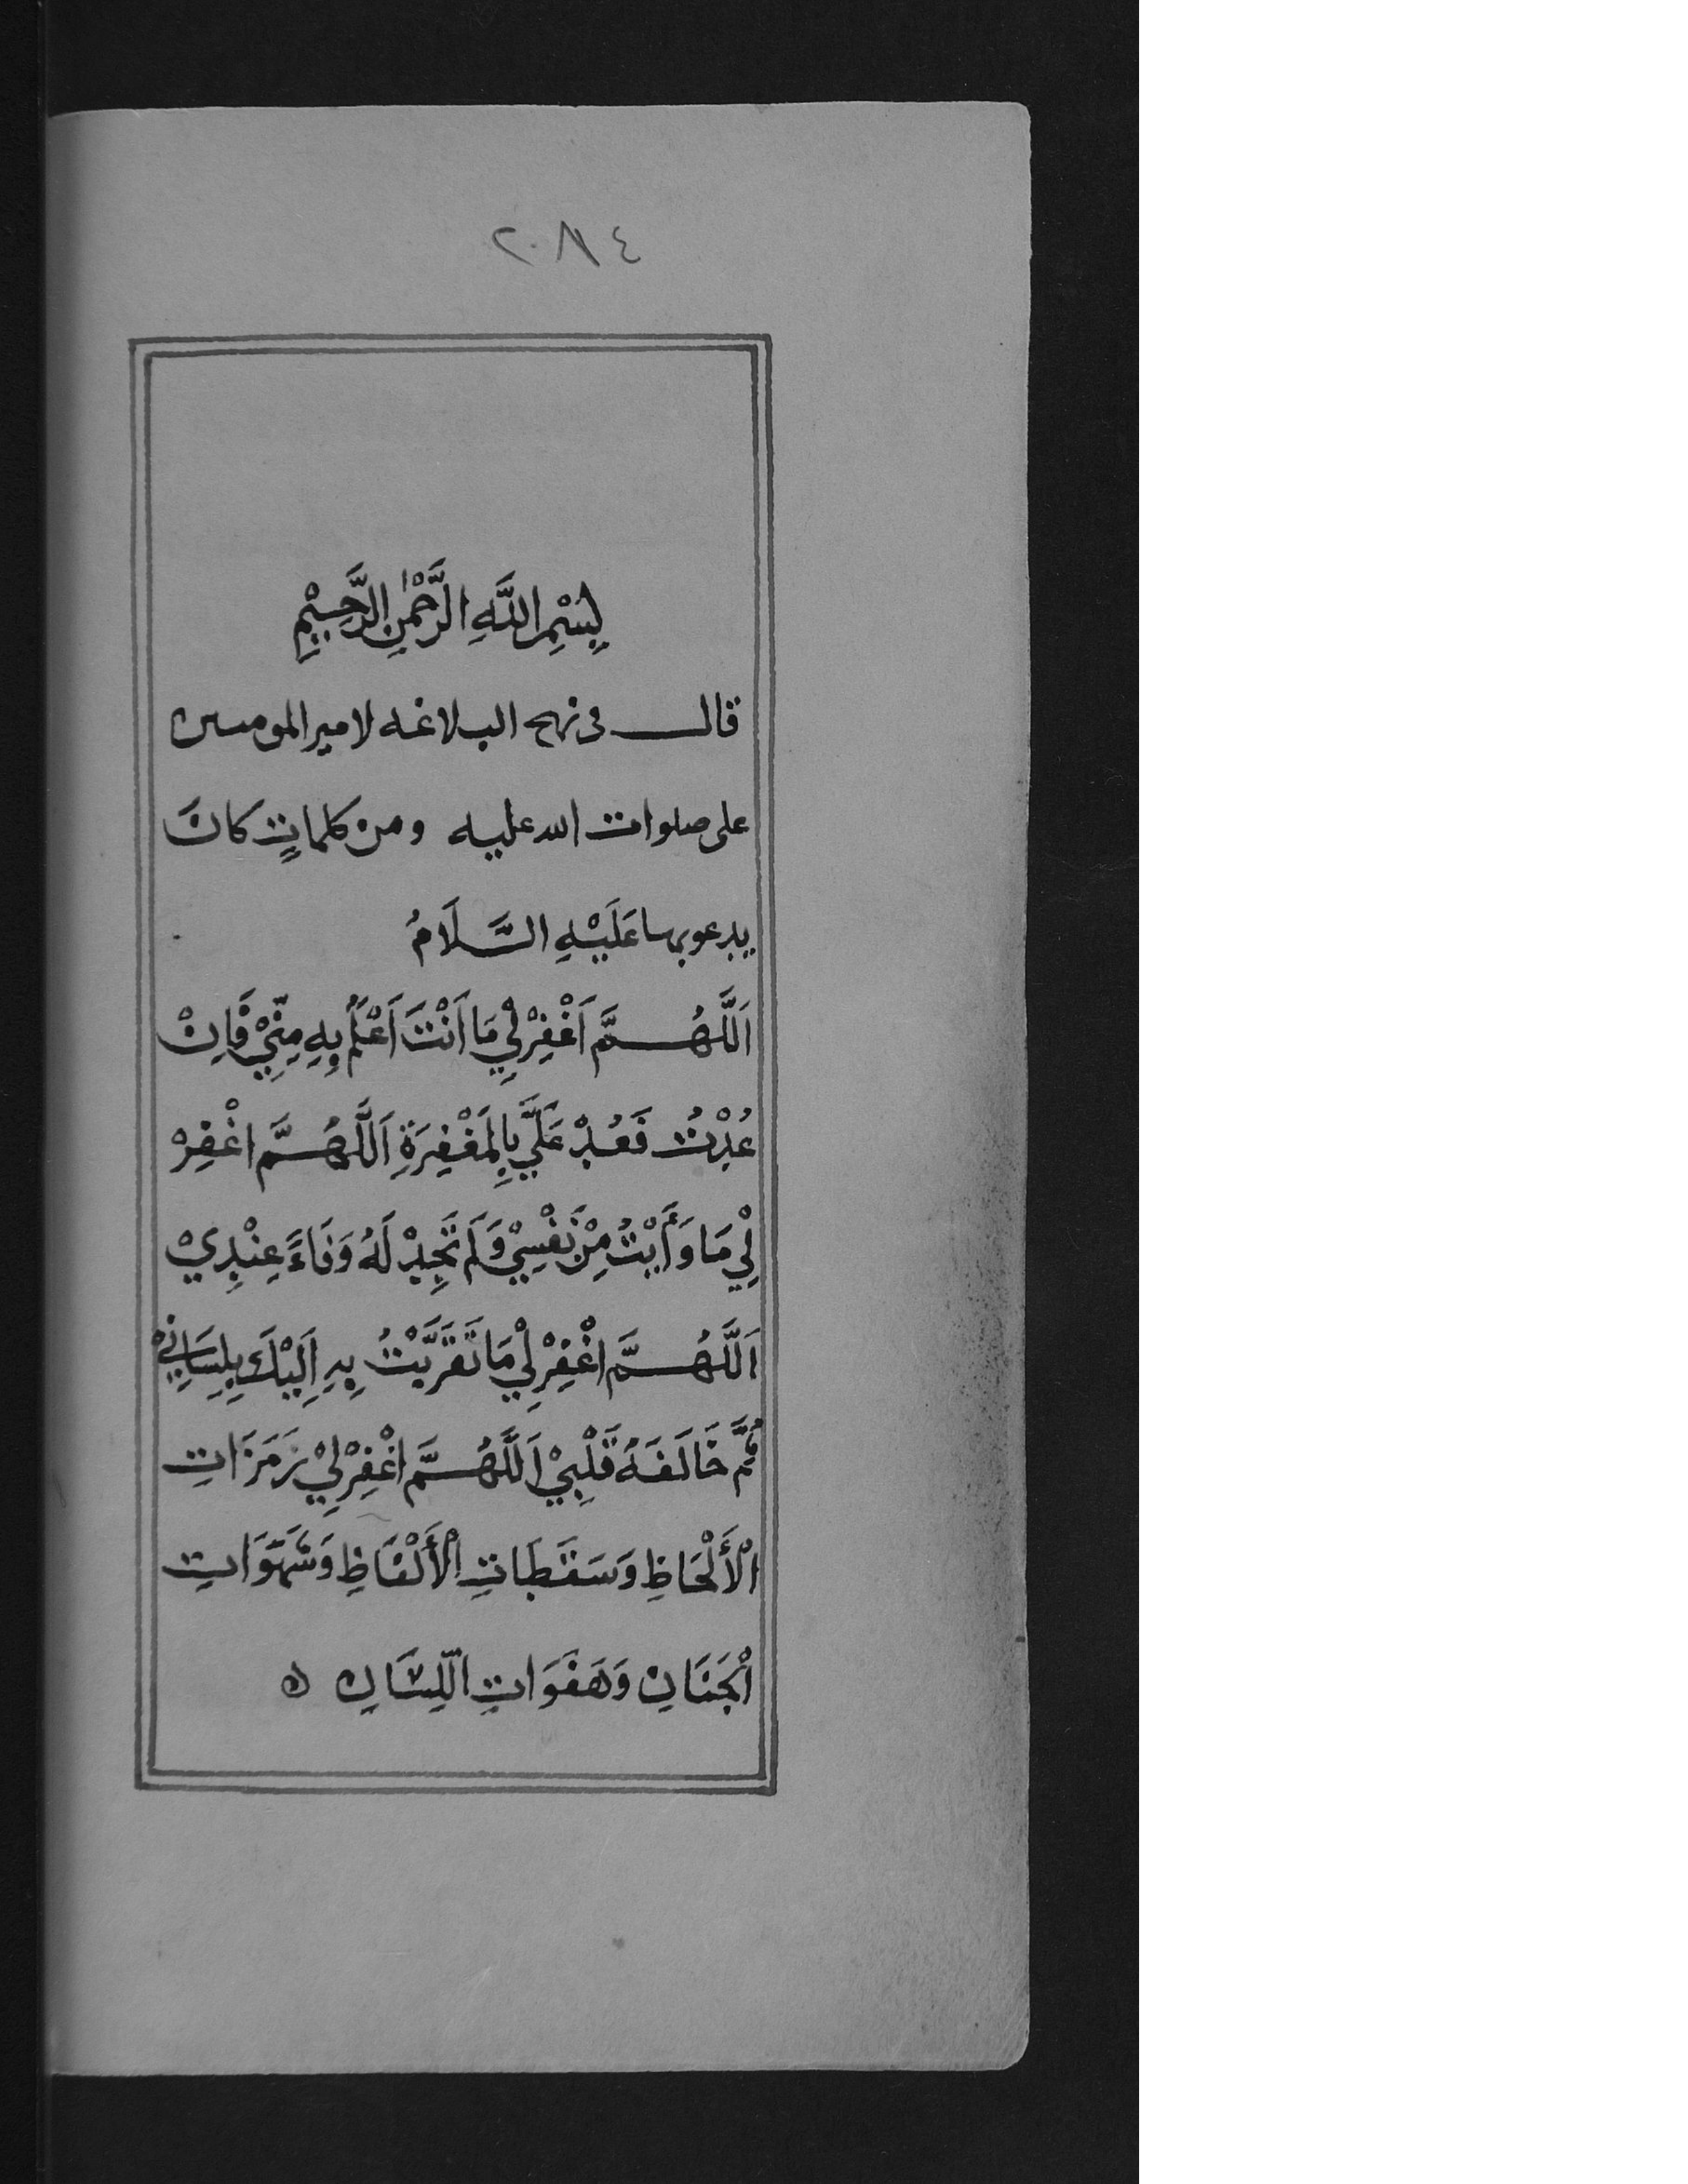 ٢٠٨٤
بِسْمِ اللَّهِ الرَّحْمٰنِ الرَّحِيْمِ
قال فى نهج البلاغه لامير المومنين
على صلوات الله عليه ومن كلماتٍ كانَ
يدعو بها عَلَيْهِ السَّلَامُ
اَللَّهُمَّ اَغْفِرْ لِيْ مَا اَنْتَ اَعْلَمُ بِهِ مِنِّيْ فَاِنْ
عُدْتُ فَعُدْ عَلَيَّ بِالمَغْفِرَةِ اَللَّهُمَّ اغْفِرْ
لِيْ مَا وَأَيْتُ مِنْ نَفْسِيْ وَلَم تَجِدْ لَهُ وَفَاءً عِنْدِيْ
اَللَّهُمَّ اغْفِرْ لِيْ مَا تَقَرَّبْتُ بِهِ اِلَيْكَ بِلِسَانِيْ
ثُمَّ خَالَفَهُ قَلْبِيْ اَللَّهُمَّ اغْفِرْ لِيْ رَمَزَاتِ
الْأَلْحَاظِ وَسَقَطَاتِ الْأَلْفَاظِ وَشَهَوَاتِ
الْجَنَانِ وَهَفَوَاتِ اللِّسَانِ ه